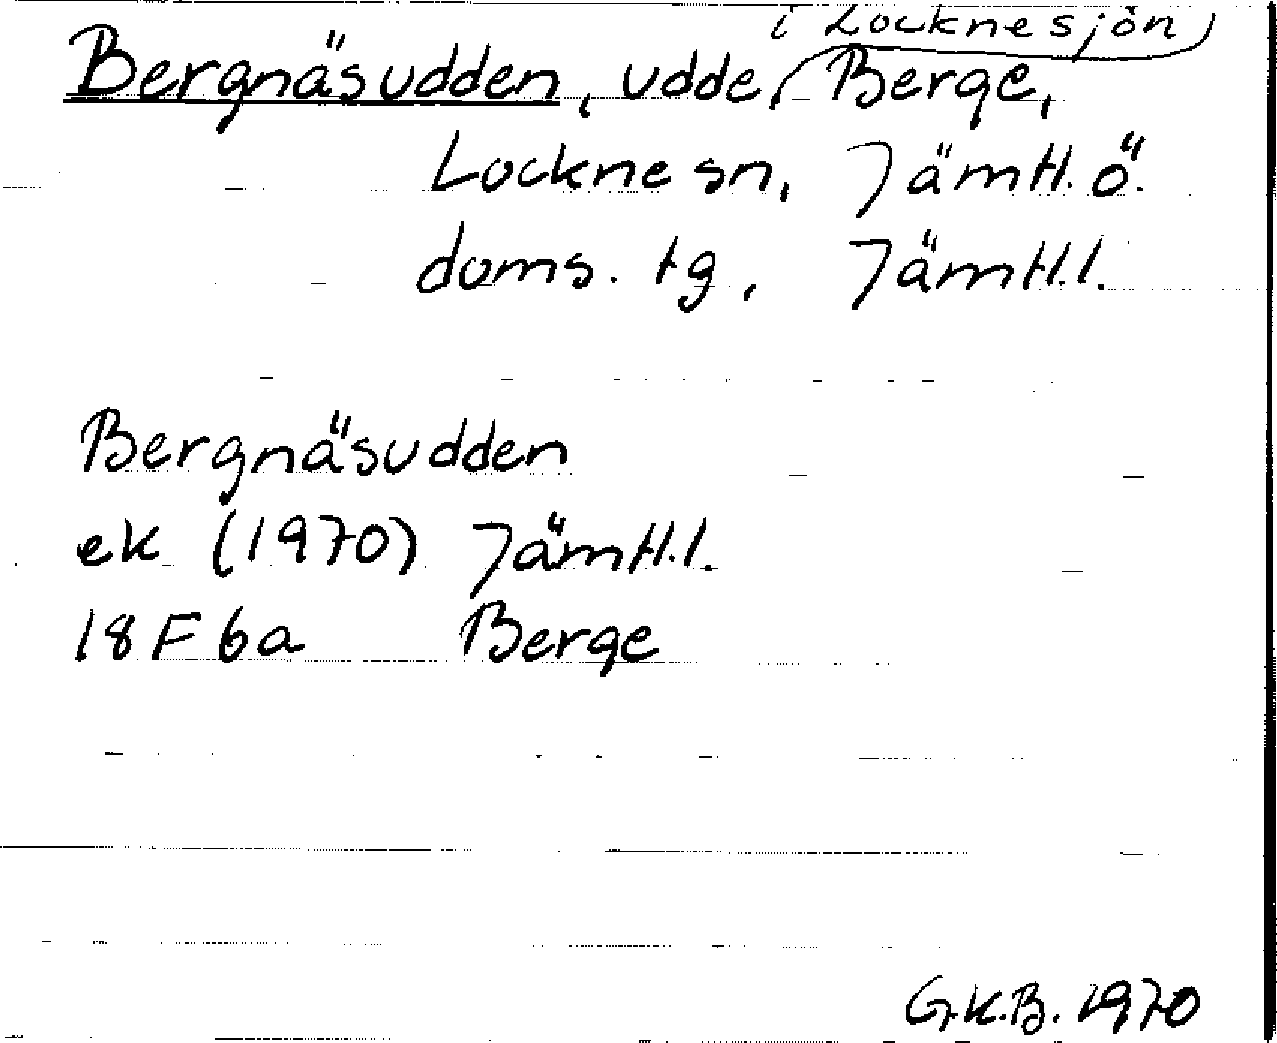 i Locknesjön
Bergnäsudden, udde, Berge,
Lockne sn, Jämtl. ö.
doms. tg, Jämtl.l.
Bergnäsudden
ek (1970) Jämtl.l.
18 F 6a Berge
G.K.B. 1970